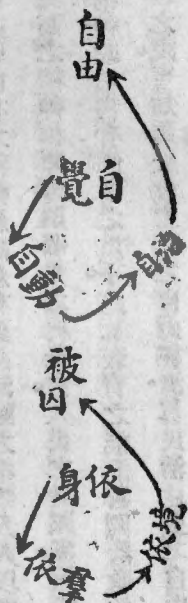 自由
自覺
自動
自治
被囚
依身
依羣
依境